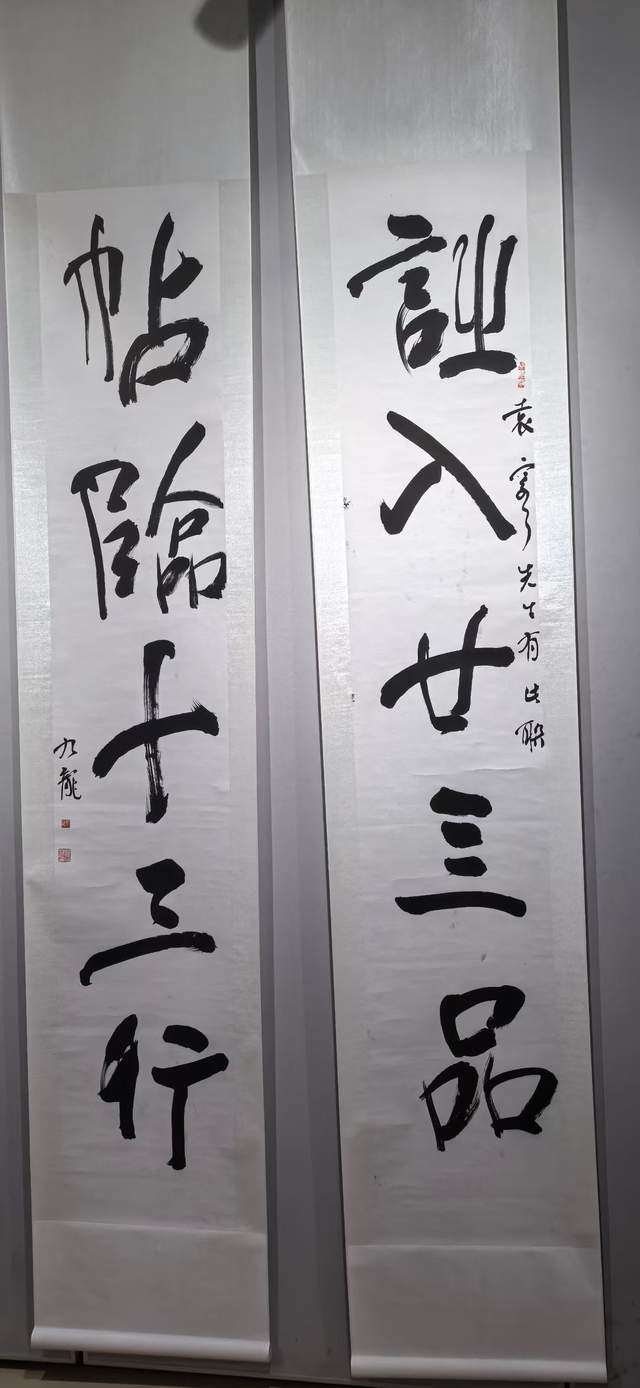 詩入廿三品
袁寒云先生有此聯
帖臨十三行
九龍